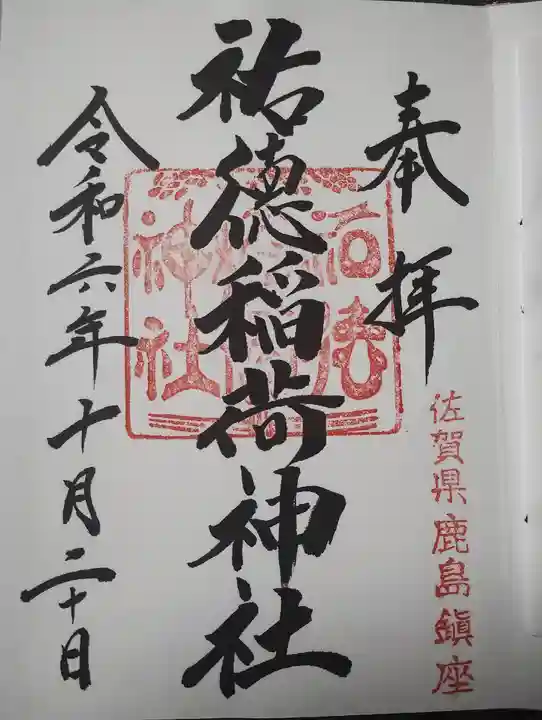 奉拝
佐賀県鹿島鎮座
祐徳稲荷神社
令和六年十月二十日